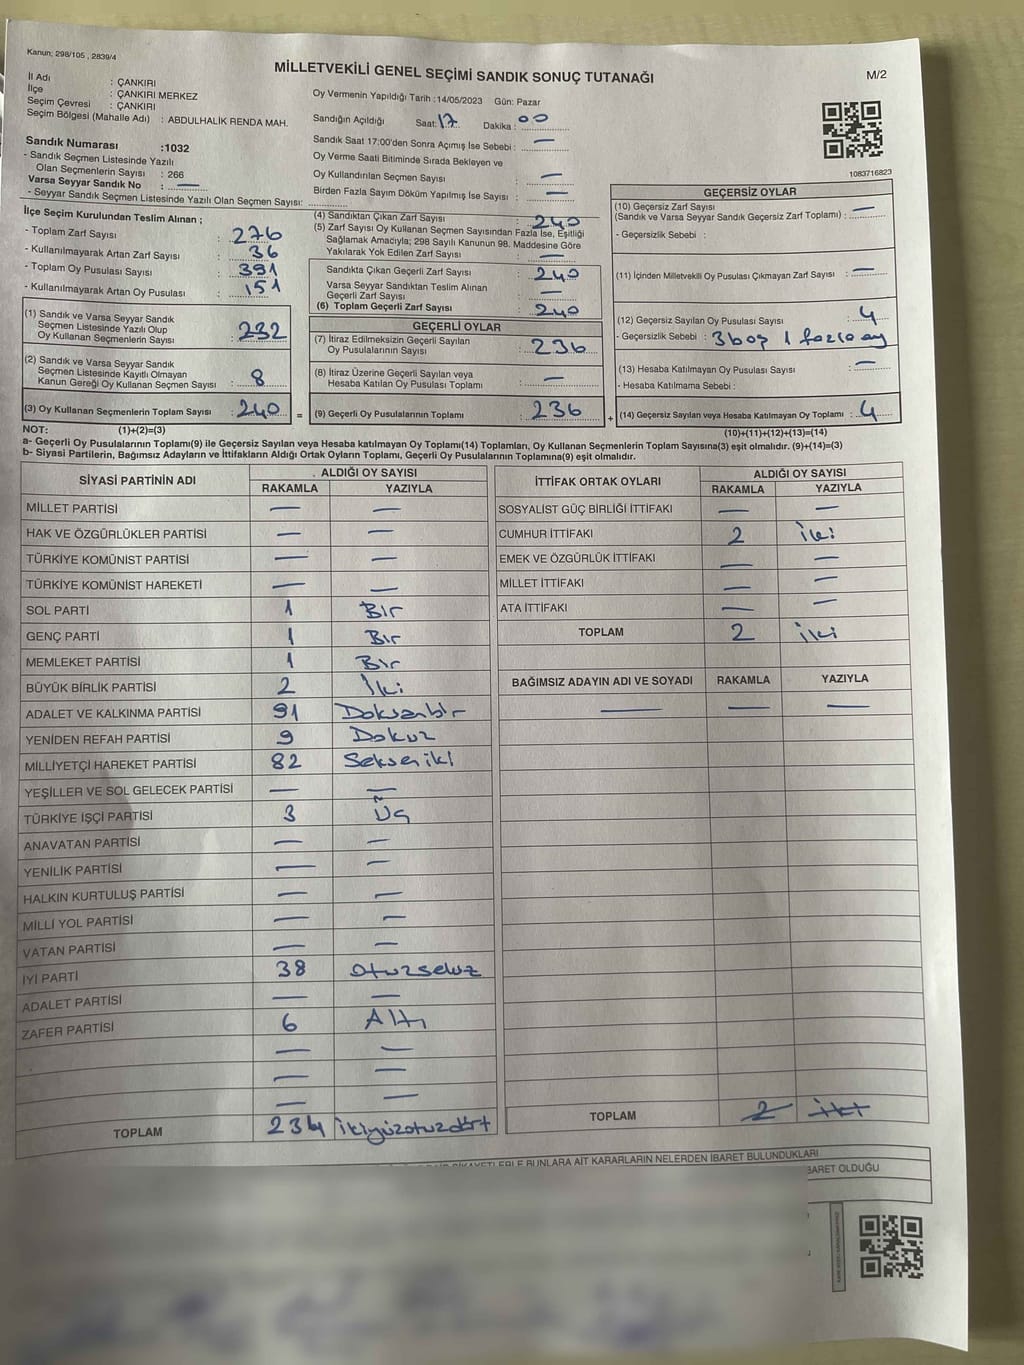 Kanun; 298/105 , 2839/4
MİLLETVEKİLİ GENEL SEÇİMİ SANDIK SONUÇ TUTANAĞI
M/2
İl Adı : ÇANKIRI
İlçe : ÇANKIRI MERKEZ
Seçim Çevresi : ÇANKIRI
Seçim Bölgesi (Mahalle Adı) : ABDULHALİK RENDA MAH.
Sandık Numarası :1032
- Sandık Seçmen Listesinde Yazılı
Olan Seçmenlerin Sayısı : 266
Varsa Seyyar Sandık No : —
- Seyyar Sandık Seçmen Listesinde Yazılı Olan Seçmen Sayısı:
Oy Vermenin Yapıldığı Tarih :14/05/2023 Gün: Pazar
Sandığın Açıldığı Saat: 17 Dakika : 00
Sandık Saat 17:00'den Sonra Açımış İse Sebebi : —
Oy Verme Saati Bitiminde Sırada Bekleyen ve
Oy Kullandırılan Seçmen Sayısı : —
Birden Fazla Sayım Döküm Yapılmış İse Sayısı : —
1083716823
İlçe Seçim Kurulundan Teslim Alınan ;
- Toplam Zarf Sayısı : 276
- Kullanılmayarak Artan Zarf Sayısı : 36
- Toplam Oy Pusulası Sayısı : 391
- Kullanılmayarak Artan Oy Pusulası : 151
(1) Sandık ve Varsa Seyyar Sandık
Seçmen Listesinde Yazılı Olup
Oy Kullanan Seçmenlerin Sayısı : 232
(2) Sandık ve Varsa Seyyar Sandık
Seçmen Listesinde Kayıtlı Olmayan
Kanun Gereği Oy Kullanan Seçmen Sayısı : 8
(3) Oy Kullanan Seçmenlerin Toplam Sayısı : 240
(4) Sandıktan Çıkan Zarf Sayısı : 240
(5) Zarf Sayısı Oy Kullanan Seçmen Sayısından Fazla İse, Eşitliği
Sağlamak Amacıyla; 298 Sayılı Kanunun 98. Maddesine Göre
Yakılarak Yok Edilen Zarf Sayısı : —
Sandıkta Çıkan Geçerli Zarf Sayısı : 240
Varsa Seyyar Sandıktan Teslim Alınan
Geçerli Zarf Sayısı : —
(6) Toplam Geçerli Zarf Sayısı : 240
GEÇERLİ OYLAR
(7) İtiraz Edilmeksizin Geçerli Sayılan
Oy Pusulalarının Sayısı : 236
(8) İtiraz Üzerine Geçerli Sayılan veya
Hesaba Katılan Oy Pusulası Toplamı : —
= (9) Geçerli Oy Pusulalarının Toplamı : 236
GEÇERSİZ OYLAR
(10) Geçersiz Zarf Sayısı —
(Sandık ve Varsa Seyyar Sandık Geçersiz Zarf Toplamı) :
- Geçersizlik Sebebi :
(11) İçinden Milletvekili Oy Pusulası Çıkmayan Zarf Sayısı : —
(12) Geçersiz Sayılan Oy Pusulası Sayısı : 4
- Geçersizlik Sebebi : 3 boş 1 fazla oy
(13) Hesaba Katılmayan Oy Pusulası Sayısı : —
- Hesaba Katılmama Sebebi :
+ (14) Geçersiz Sayılan veya Hesaba Katılmayan Oy Toplamı : 4
NOT: (1)+(2)=(3)
(10)+(11)+(12)+(13)=(14)
a- Geçerli Oy Pusulalarının Toplamı(9) ile Geçersiz Sayılan veya Hesaba katılmayan Oy Toplamı(14) Toplamları, Oy Kullanan Seçmenlerin Toplam Sayısına(3) eşit olmalıdır. (9)+(14)=(3)
b- Siyasi Partilerin, Bağımsız Adayların ve İttifakların Aldığı Ortak Oyların Toplamı, Geçerli Oy Pusulalarının Toplamına(9) eşit olmalıdır.
SİYASİ PARTİNİN ADI ALDIĞI OY SAYISI
RAKAMLA YAZIYLA
MİLLET PARTİSİ — —
HAK VE ÖZGÜRLÜKLER PARTİSİ — —
TÜRKİYE KOMÜNİST PARTİSİ — —
TÜRKİYE KOMÜNİST HAREKETİ — —
SOL PARTİ 1 Bir
GENÇ PARTİ 1 Bir
MEMLEKET PARTİSİ 1 Bir
BÜYÜK BİRLİK PARTİSİ 2 İki
ADALET VE KALKINMA PARTİSİ 91 Doksanbir
YENİDEN REFAH PARTİSİ 9 Dokuz
MİLLİYETÇİ HAREKET PARTİSİ 82 Sekseniki
YEŞİLLER VE SOL GELECEK PARTİSİ — —
TÜRKİYE İŞÇİ PARTİSİ 3 Üç
ANAVATAN PARTİSİ — —
YENİLİK PARTİSİ — —
HALKIN KURTULUŞ PARTİSİ — —
MİLLİ YOL PARTİSİ — —
VATAN PARTİSİ — —
İYİ PARTİ 38 Otuzsekiz
ADALET PARTİSİ — —
ZAFER PARTİSİ 6 Altı
— —
— —
— —
TOPLAM 234 İkiyüzotuzdört
İTTİFAK ORTAK OYLARI ALDIĞI OY SAYISI
RAKAMLA YAZIYLA
SOSYALİST GÜÇ BİRLİĞİ İTTİFAKI — —
CUMHUR İTTİFAKI 2 İki
EMEK VE ÖZGÜRLÜK İTTİFAKI — —
MİLLET İTTİFAKI — —
ATA İTTİFAKI — —
TOPLAM 2 İki
BAĞIMSIZ ADAYIN ADI VE SOYADI RAKAMLA YAZIYLA
— — —
TOPLAM 2 İki
BUNLARA AİT KARARLARIN NELERDEN İBARET BULUNDUKLARI
OLDUĞU